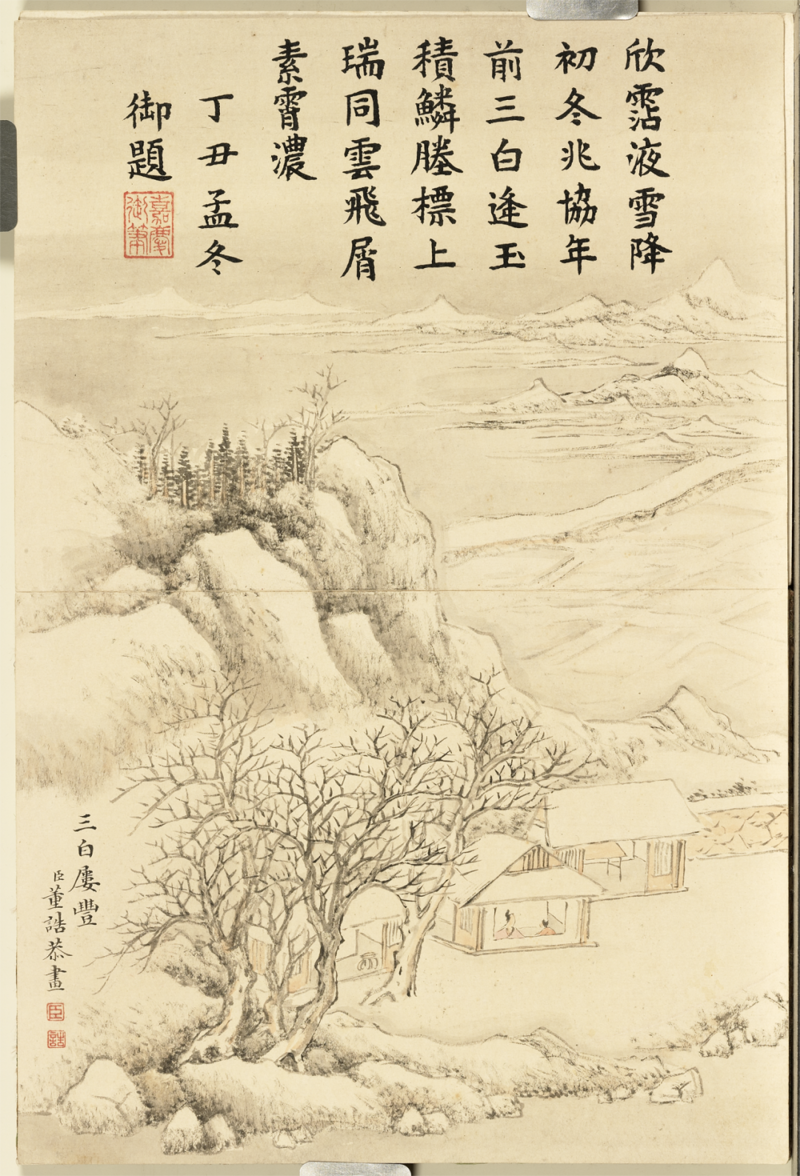 欣霑液雪降
初冬兆協年
前三白逢玉
積鱗塍標上
瑞同雲飛屑
素霄濃
丁丑孟冬
御題
嘉慶御筆
三白屢豐
臣董誥恭畫
臣
誥